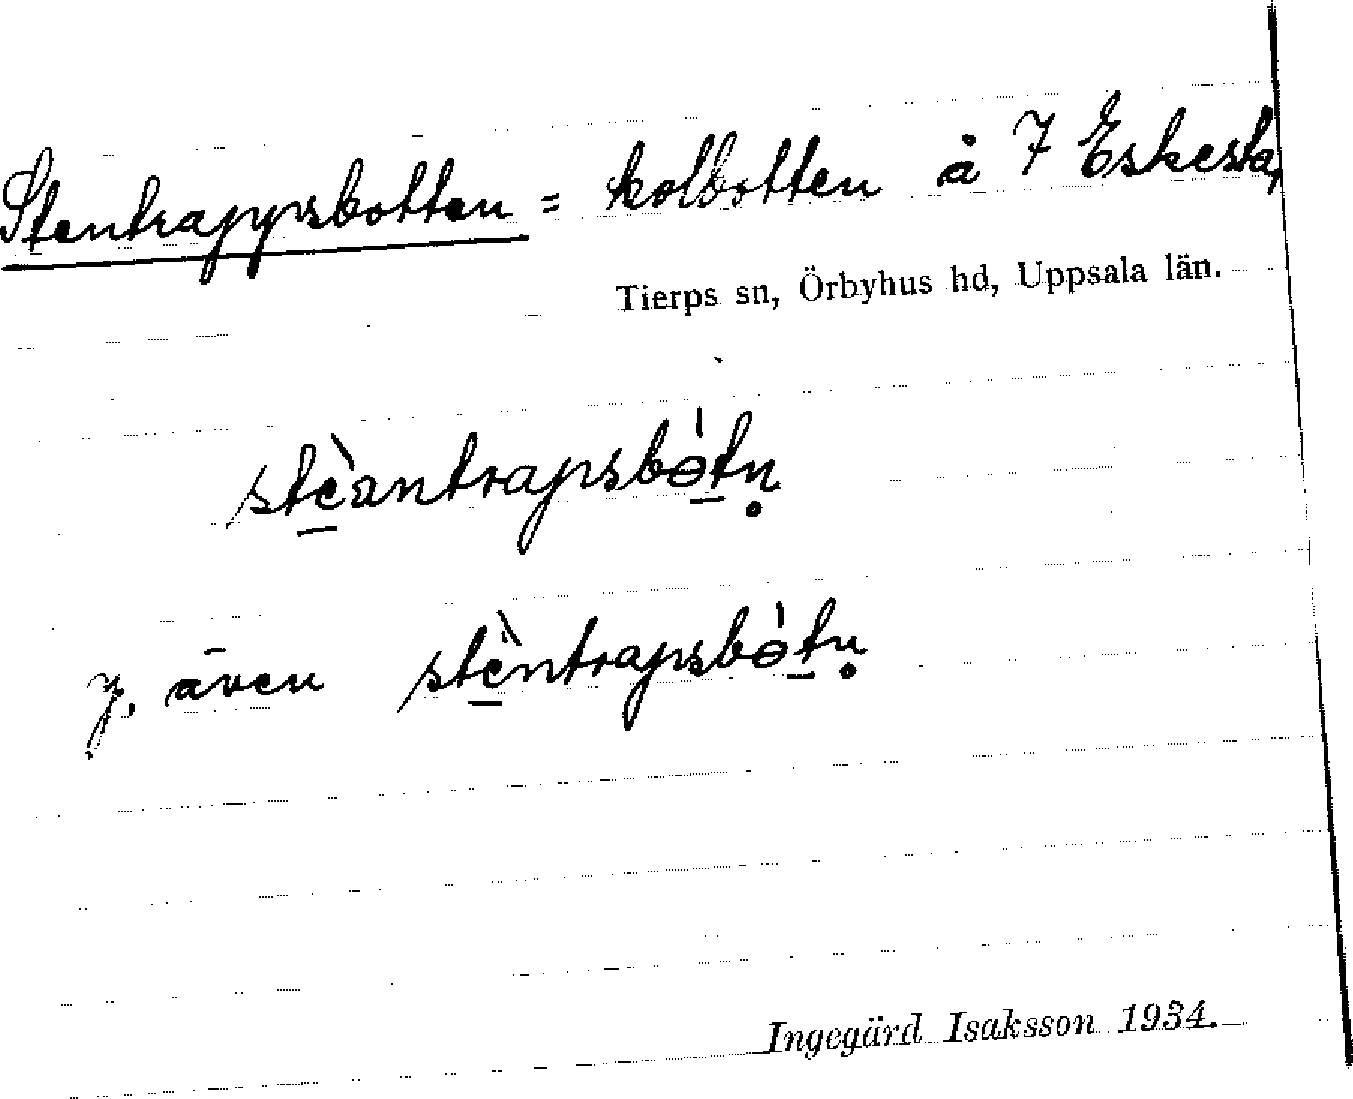 Stentrappsbotten = kolbotten å 7 Eskesta,
Tierps sn, Örbyhus hd, Uppsala län.
stè̠antrapsbɵ̠́tn̥
y. även stè̠ntrapsbɵ̠́tn̥
Ingegärd Isaksson 1934.